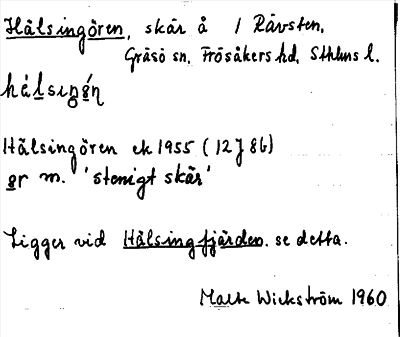 Hälsingören, skär å / Rävsten,
Gräsö sn, Frösåkers hd, Sthlms l.
hälsingön
Hälsingören ek 1955 (12J 8b)
ör m. 'stenigt skär'
Ligger vid Hälsingfjärden. se detta.
Wickström 1960